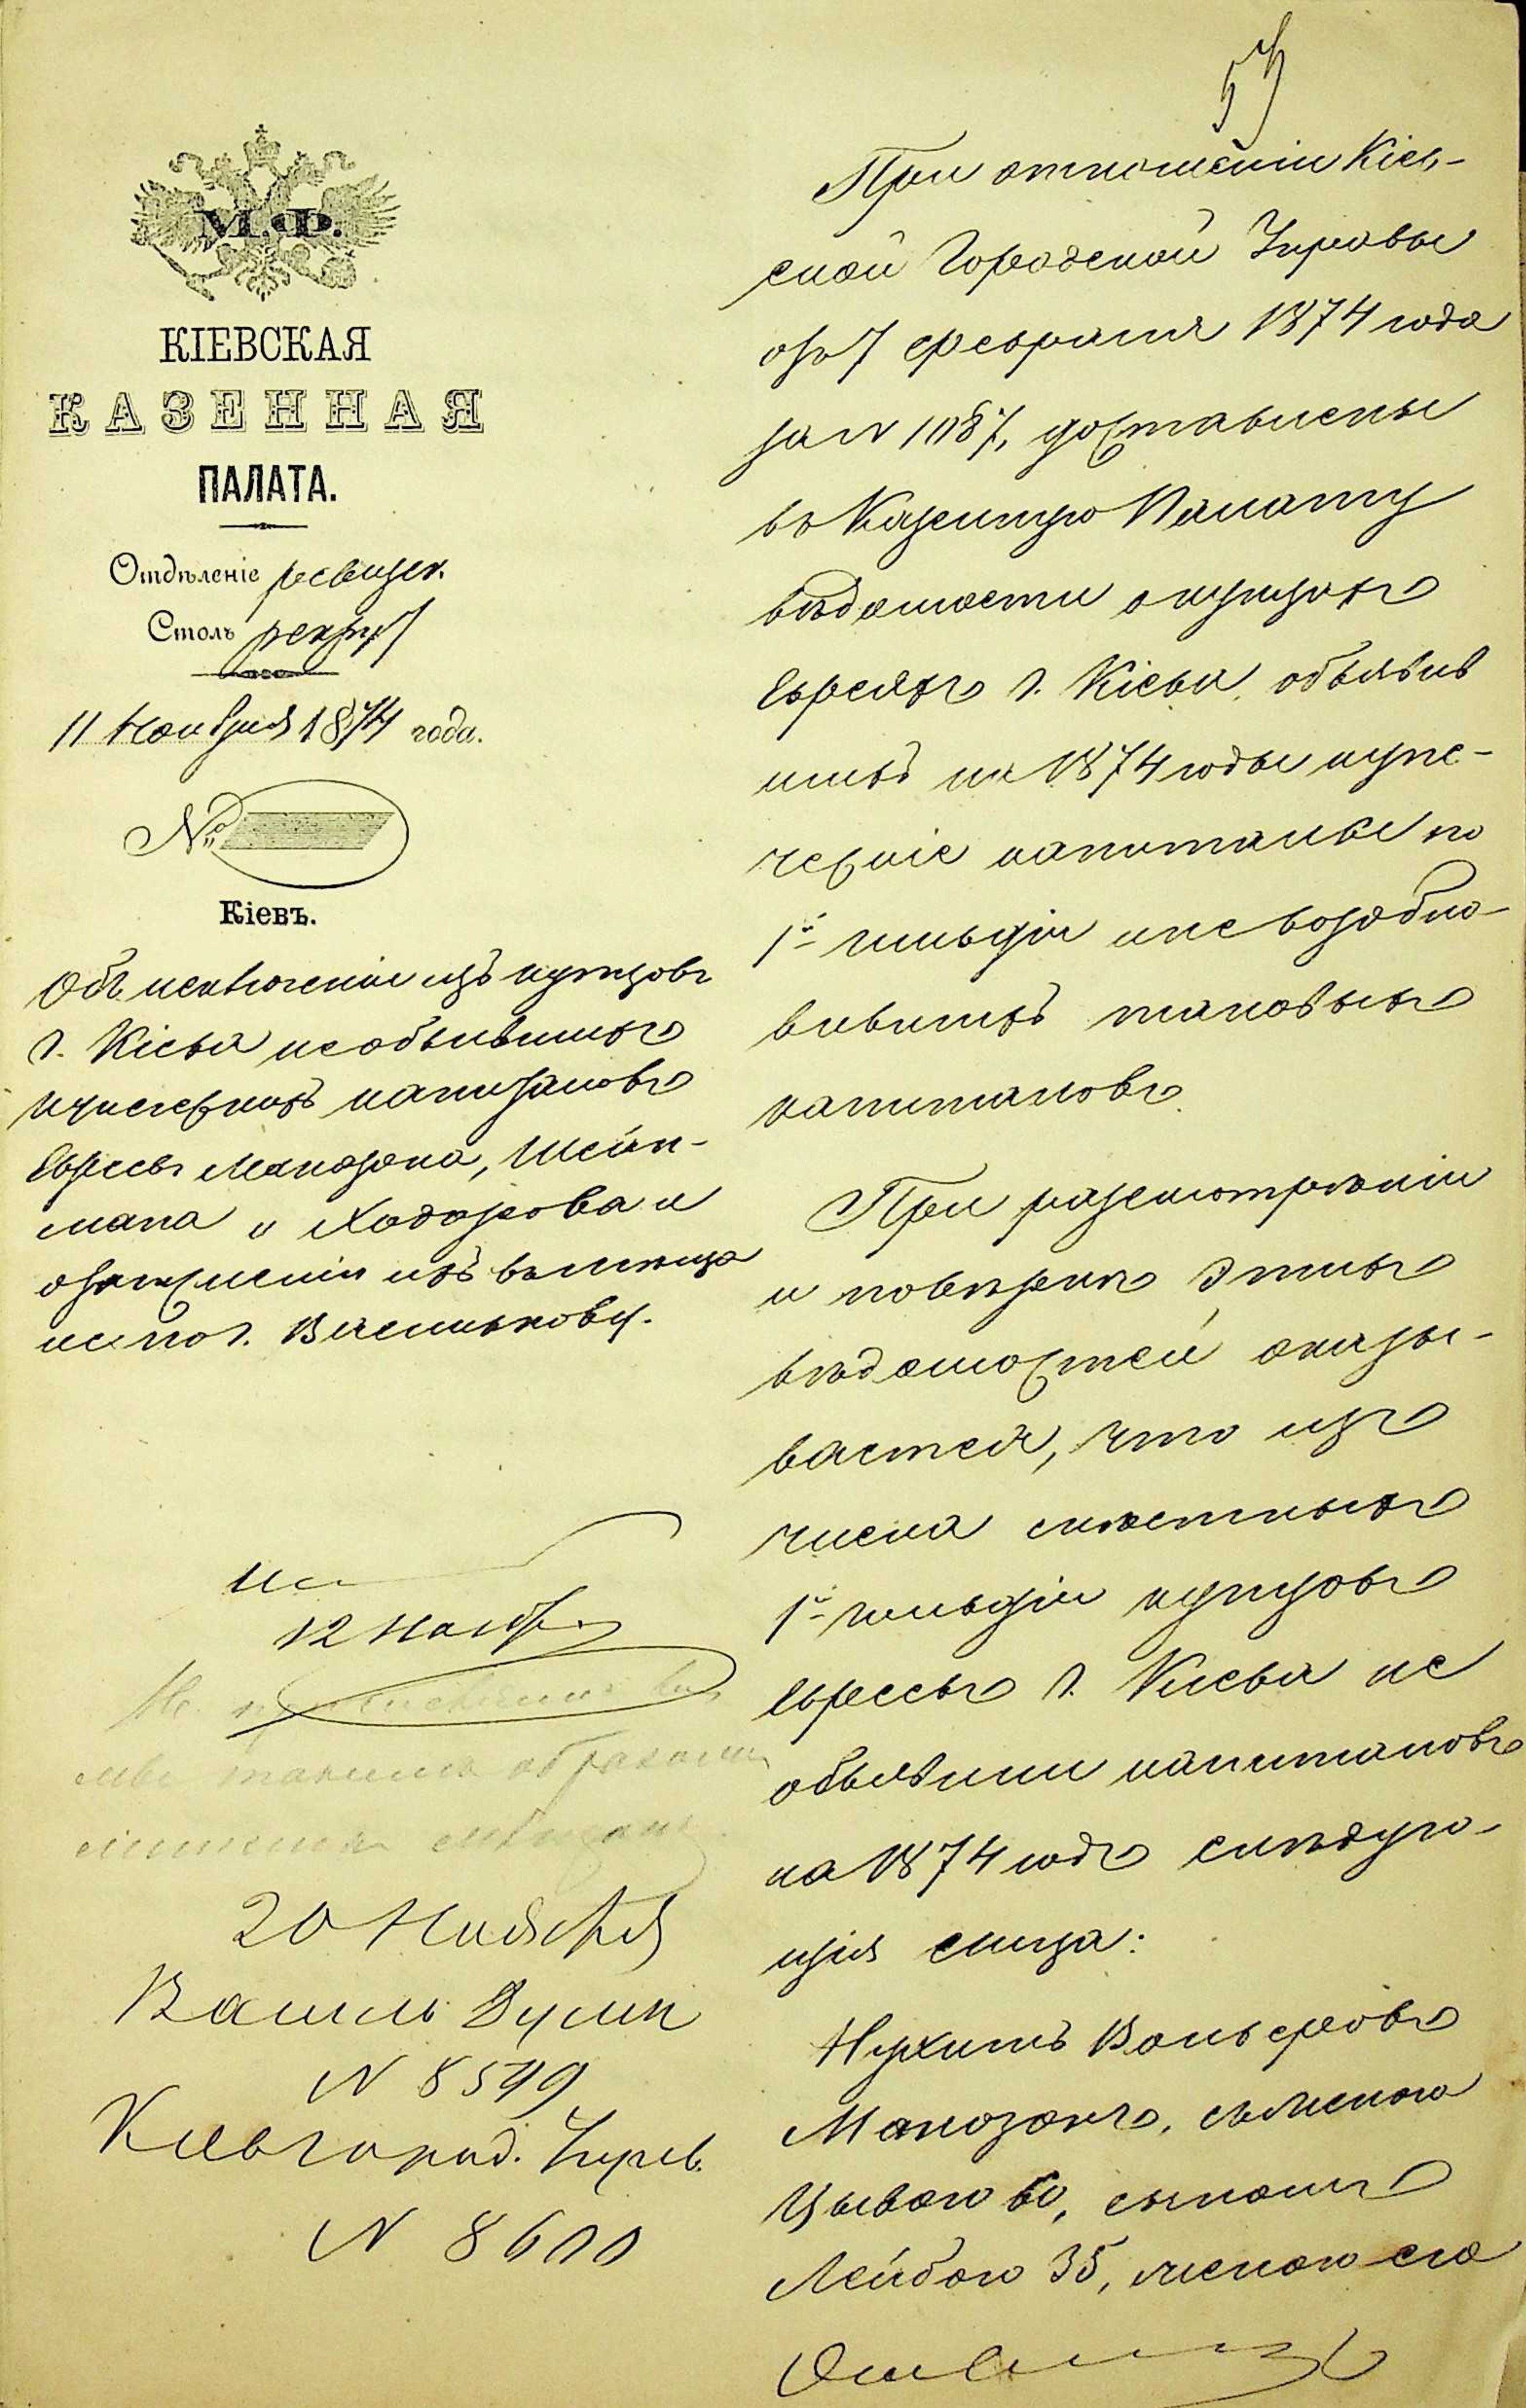 57
М.Ф.
КІЕВСКАЯ
КАЗЕННАЯ
ПАЛАТА.
Отдѣленіе ревизск.
Столъ рекрут
11 Ноября 1874 года.
№
Кіевъ.
Объ исключеніи изъ купцовъ
г. Кіева необъявившихъ
купеческихъ капиталовъ
Евреевъ Манозона, Шейн-
мана и Ходорова и
отчисленіи ихъ въ мѣщане
по г. Василькову.
12 Ноябр.
таким образом
20 Ноября
Васил. Думѣ
N 8599
Кіев город. Управ.
N 8600
При отношеніи Кіев-
ской Городской Управы
отъ 7 февраля 1874 года
за N 1187, доставлены
въ Казенную Палату
вѣдомости о купцахъ
Евреяхъ г. Кіева, объявив
шихъ на 1874 годы купе-
ческіе капиталы по
1й гильдіи и не возобно-
вившихъ таковыхъ
капиталовъ.
При разсмотрѣніи
и повѣркѣ этихъ
вѣдомостей оказы-
вается, что изъ
числа мѣстныхъ
1й гильдіи купцовъ
евреевъ г. Кіева не
объявили капиталовъ
на 1874 годъ слѣдую-
щія лица:
Нухимъ Вольфовъ
Манозонъ, съ женою
Цывою 60, сыномъ
Лейбою 35, женою его